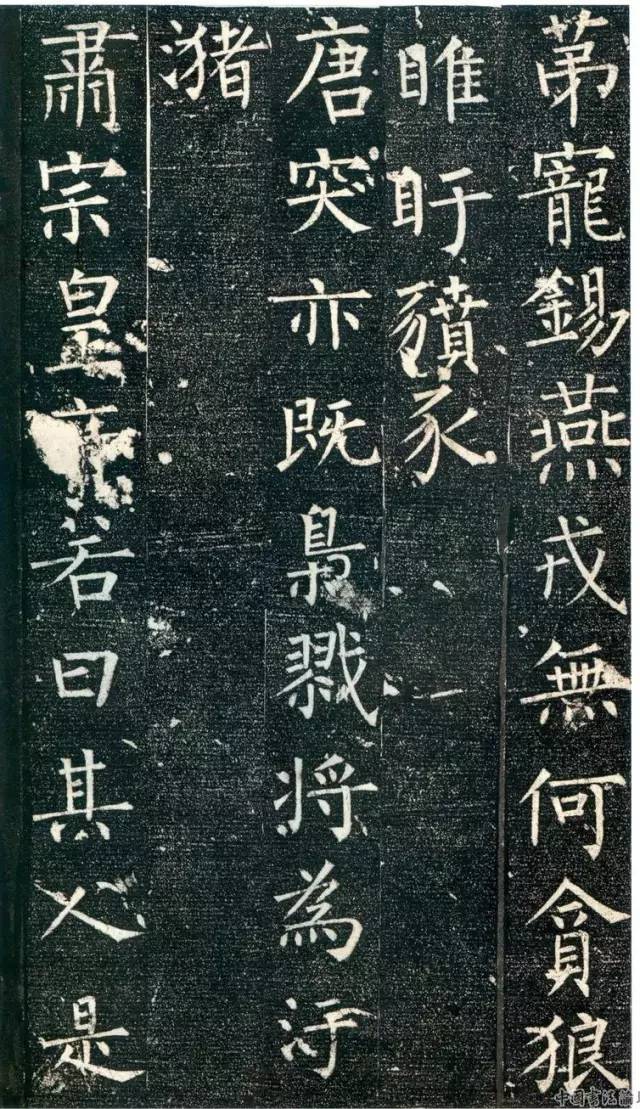 苐寵錫燕戎無何貪狼
睢盱豶豕
唐突亦既梟戮將為汙
瀦
肅宗皇帝若曰其人是
中國書法論